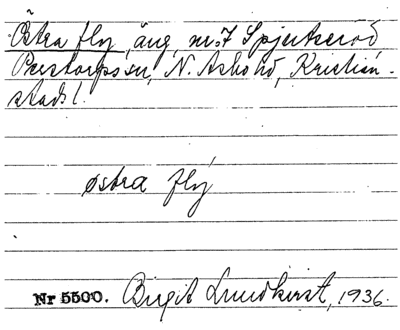 Östra fly, äng, nr 7 Spjutseröd
Perstorps sn, N. Åsbo hd, Kristian-
stads l.
østra flý
Nr 5500. Birgit Lundkvist, 1936.